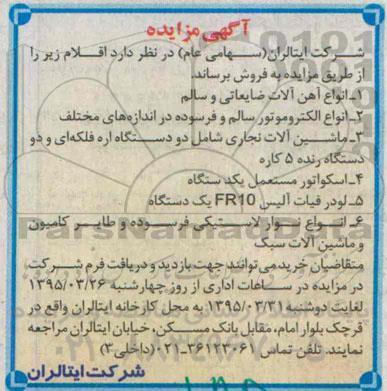 آگهی مزایده
شرکت ایتالران(سهامی عام) در نظر دارد اقلام زیر را
از طریق مزایده به فروش برساند.
۱_انواع آهن آلات ضایعاتی و سالم
۲_انواع الکتروموتور سالم و فرسوده در اندازه‌های مختلف
۳_ماشین آلات نجاری شامل دو دستگاه اره فلکه‌ای و دو
دستگاه رنده ۵ کاره
۴_اسکواتور مستعمل یکدستگاه
۵_لودر فیات آلیس FR10 یک دستگاه
۶_انواع نوار لاستیکی فرسوده و طایر کامیون
و ماشین آلات سبک
متقاضیان خرید می توانند جهت بازدید و دریافت فرم شرکت
در مزایده در ساعات اداری از روز چهارشنبه ۱۳۹۵/۰۳/۲۶
لغایت دوشنبه ۱۳۹۵/۰۳/۳۱ به محل کارخانه ایتالران واقع در
قرچک بلوار امام، مقابل بانک مسکن، خیابان ایتالران مراجعه
نمایند. تلفن تماس ۳۶۱۲۳۰۶۱-۰۲۱ (داخلی۳)
شرکت ایتالران
ParsNamadData